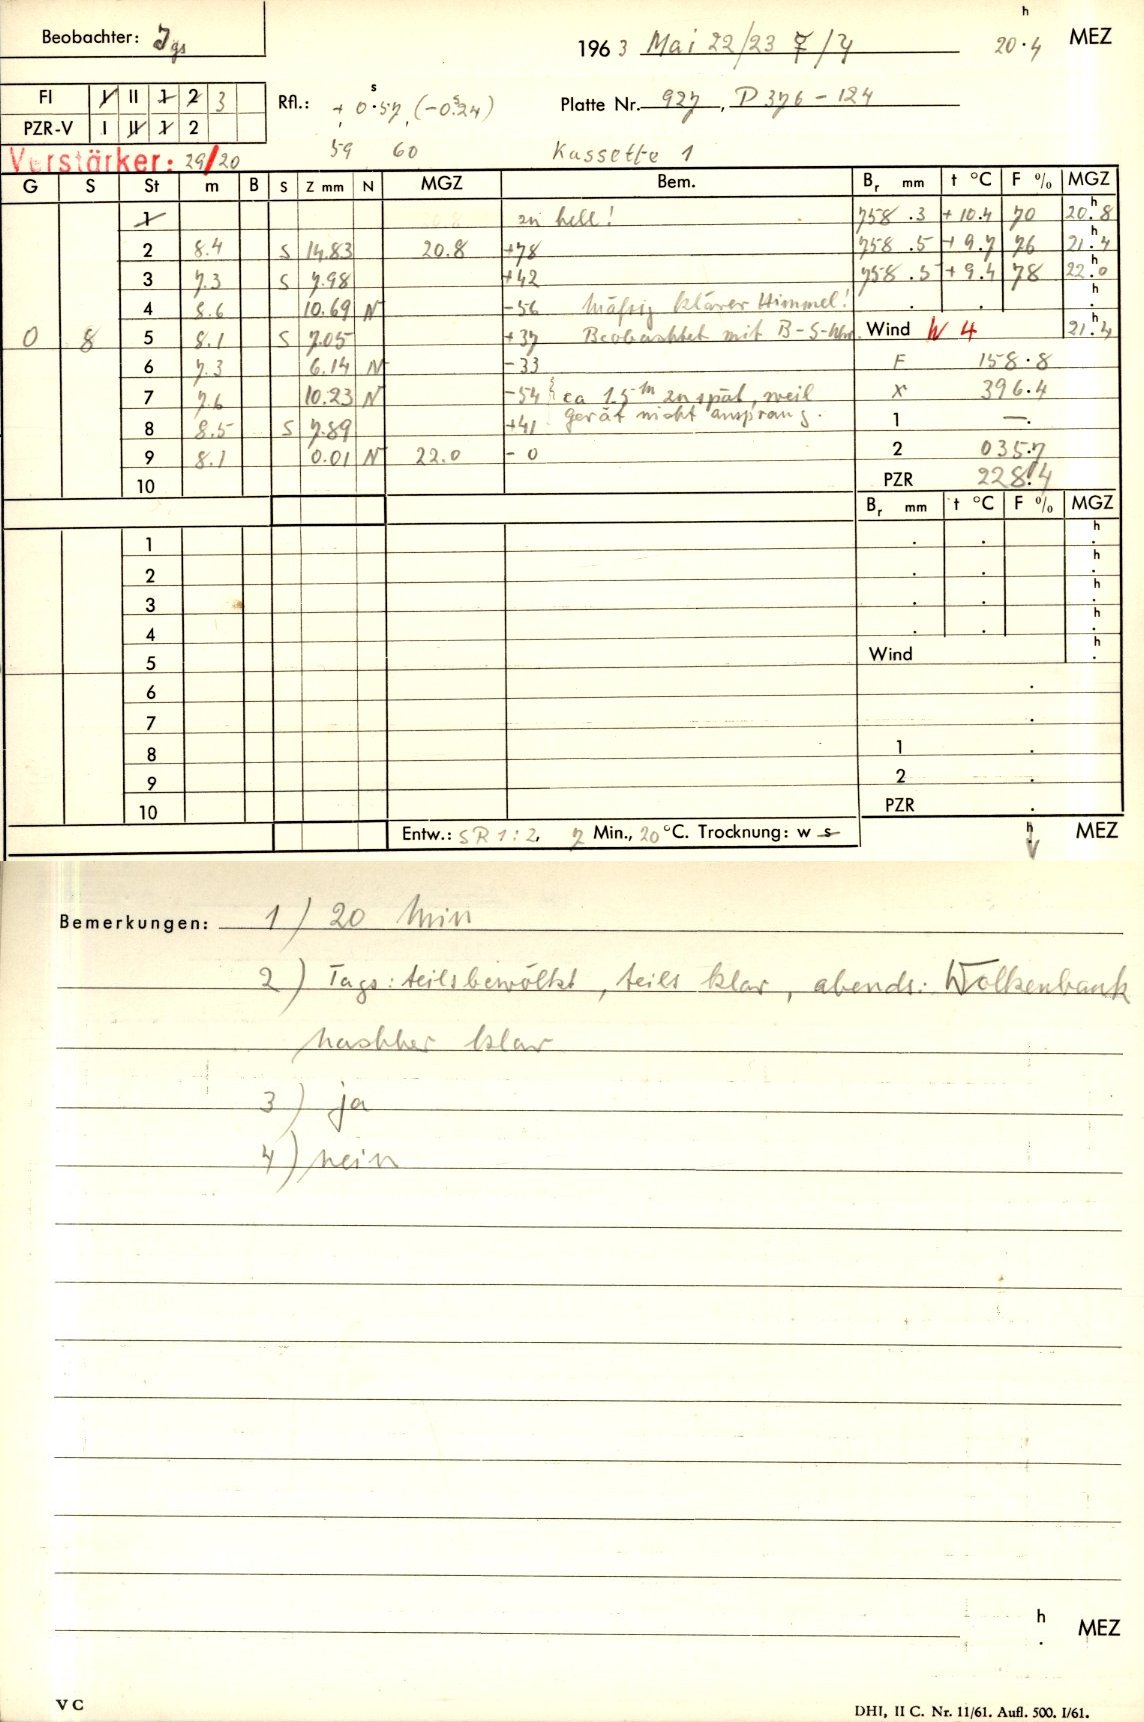 Beobachter: Jgs
1963 Mai 22/23 /4 20.4 h MEZ
FI I II 1 2 3
PZR-V I II 1 2
Rfl.: + 0.s57 (-0.s24)
59 60
Platte Nr. 927, P 376 - 124
Verstärker: 29/20
Kassette 1
G S St m B S Z mm N MGZ Bem. Br mm t °C F % MGZ
1 zu hell! 758.3 +10.4 70 20.h8
2 8.4 S 14.83 20.8 +78 758.5 +9.7 76 21.h4
3 7.3 S 7.98 +42 758.5 +9.4 78 22.h0
4 8.6 10.69 N -56 Mässig klarer Himmel! . . h.
0 8 5 8.1 S 7.05 +37 Beobachtet mit B-S-Uhr. Wind W 4 21.h4
6 7.3 6.14 N -33 F 158.8
7 7.6 10.23 N -54 { ca 15m zu spät, weil x 396.4
8 8.5 S 7.89 +41 gerät nicht ansprang. 1 —.
9 8.1 0.01 N 22.0 - 0 2 035.7
10 PZR 228.4
Br mm t °C F % MGZ
1 . . h.
2 . . h.
3 . . h.
4 . . h.
5 Wind h.
6 .
7 .
8 1 .
9 2 .
10 PZR .
Entw.: SR 1:2, 7 Min., 20 °C. Trocknung: w s h MEZ
Bemerkungen: 1) 20 Min
2) Tags: teilsbewölkt, teils klar, abends: Wolkenbank
nachher klar
3) ja
4) nein
h. MEZ
V C
DHI, II C. Nr. 11/61. Aufl. 500. I/61.